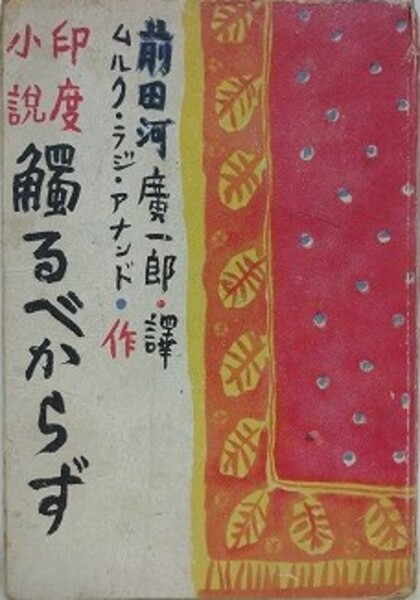 前田河廣一郎・譯
ムルク・ラジ・アナンド・作
印度
小説
觸るべからず